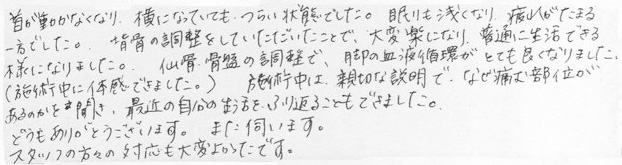 首が動かなくなり、横になっていても、つらい状態でした。眠りも浅くなり、痛みがたまる
一方でした。背骨の調整をしていただいたことで、大変楽になり、普通に生活できる
様になりました。仙骨、骨盤の調整で、脚の血液循環がとても良くなりました。
(施術中に体感できました。) 施術中は、親切な説明で、なぜ痛む部位が
あるのかを聞き、最近の自分の生活をふり返ることもできました。
どうもありがとうございます。また伺います。
スタッフの方々の対応も大変よかったです。